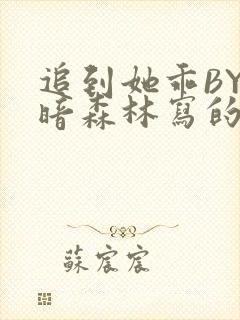 追到她乖BY
暗森林寫的
蘇宸宸